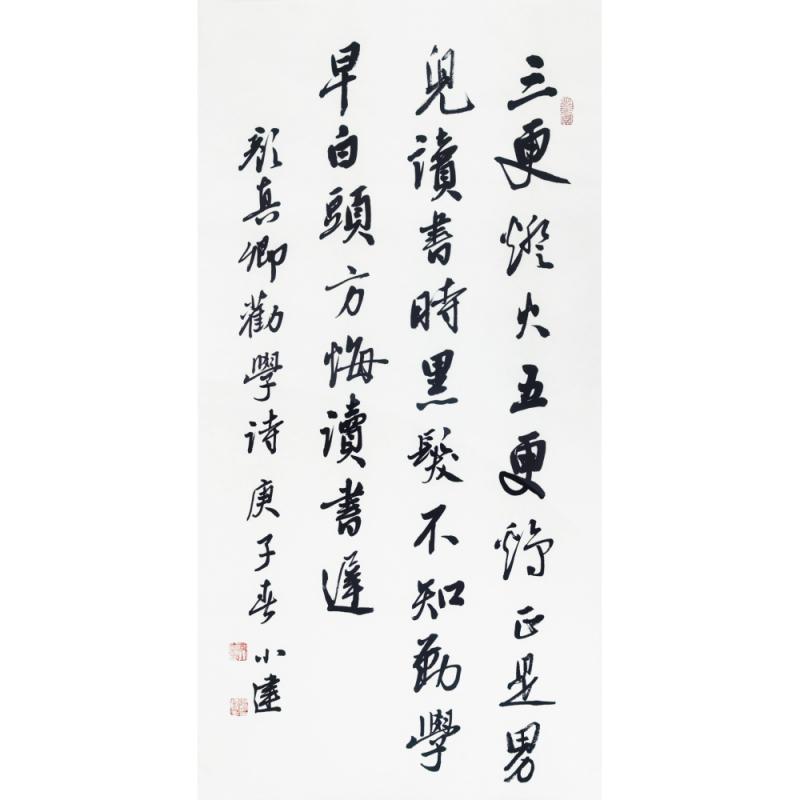 三更燈火五更鷄正是男
兒讀書時黑髮不知勤學
早白頭方悔讀書遲
顏真卿勸學詩庚子春小